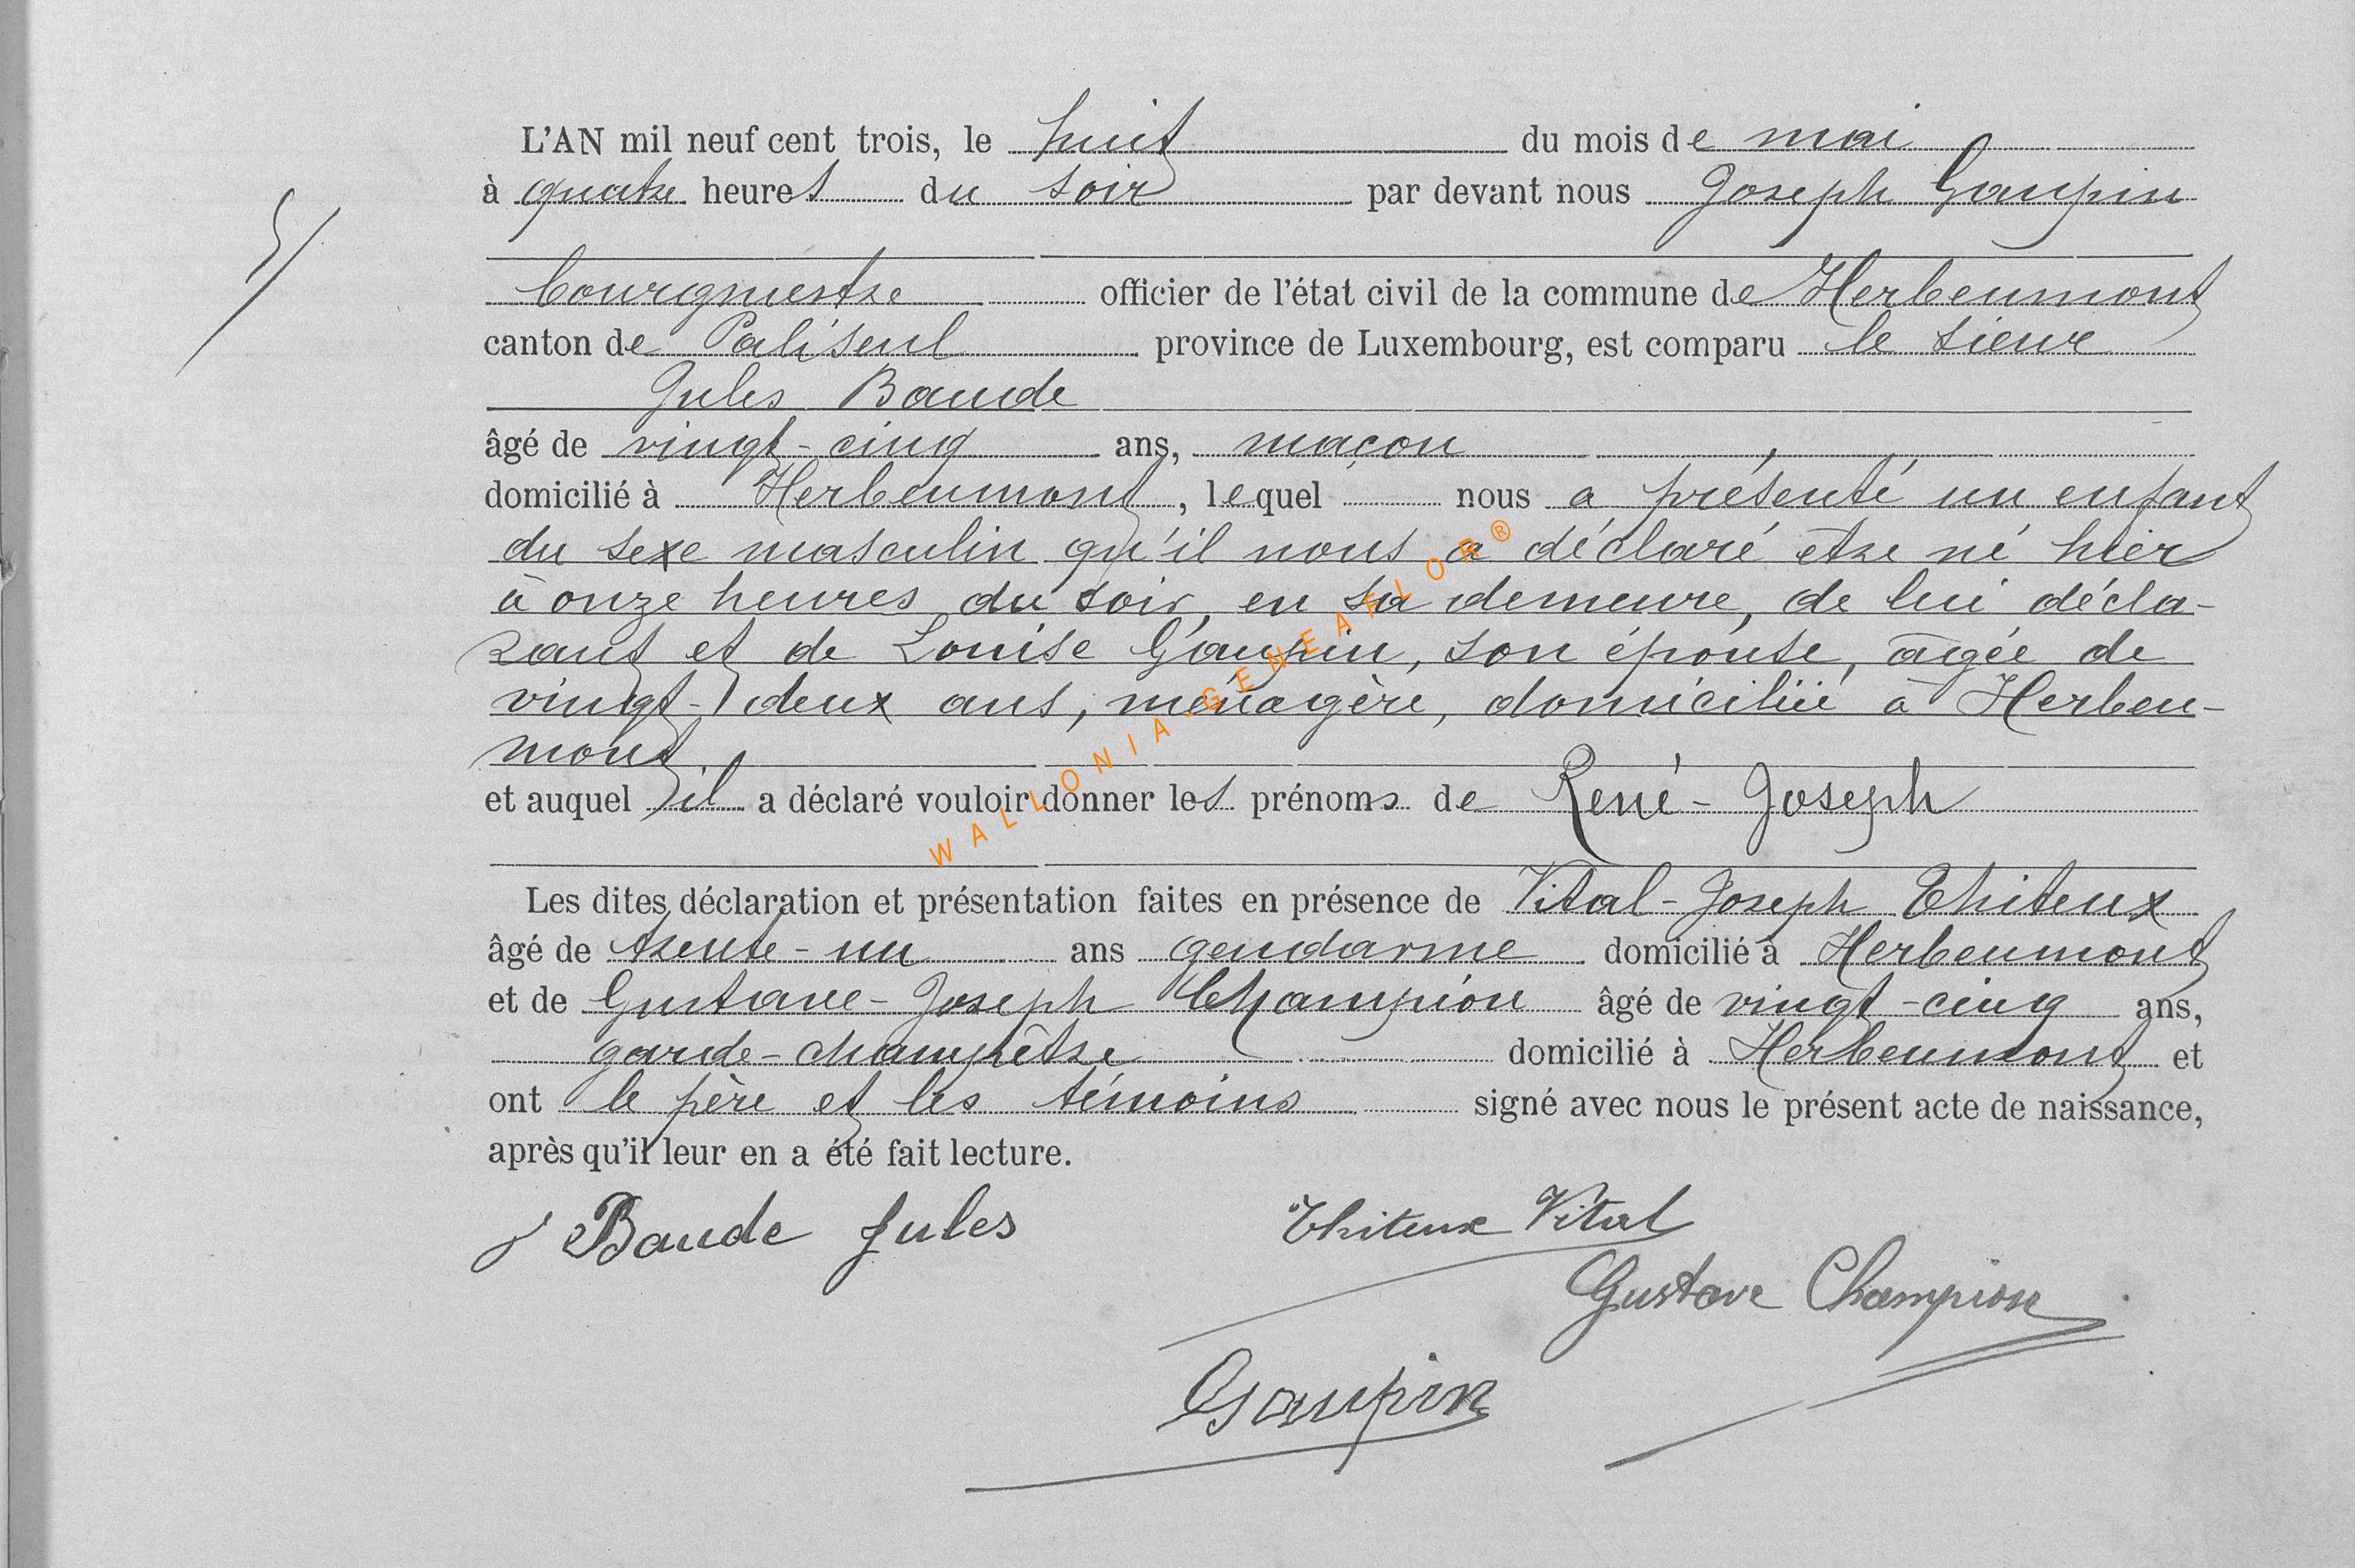 L'AN mil neuf cent trois, le huit du mois de mai
à quatre heures du soir par devant nous Joseph Gaupin
bourgmestre officier de l'état civil de la commune de Herbeumont
canton de Paliseul province de Luxembourg, est comparu le sieur
Jules Baude
âgé de vingt-cinq ans, maçon
domicilié à Herbeumont, lequel nous a présenté un enfant
du sexe masculin qu'il nous a déclaré être né hier
à onze heures du soir, en sa demeure, de lui décla-
rant et de Louise Gaupin, son épouse, âgée de
vingt-deux ans, ménagère, domiciliée à Herbeu-
mont.
et auquel il a déclaré vouloir donner les prénoms de René-Joseph
Les dites déclaration et présentation faites en présence de Vital-Joseph Thiteux
âgé de trente-un ans gendarme domicilié à Herbeumont
et de Gustave-Joseph Champion âgé de vingt-cinq ans,
garde-champêtre domicilié à Herbeumont et
ont le père et les témoins signé avec nous le présent acte de naissance,
après qu'il leur en a été fait lecture.
Baude Jules Thiteux Vital
Gustave Champion
Gaupin
WALLONIA-GENEAFLOR®